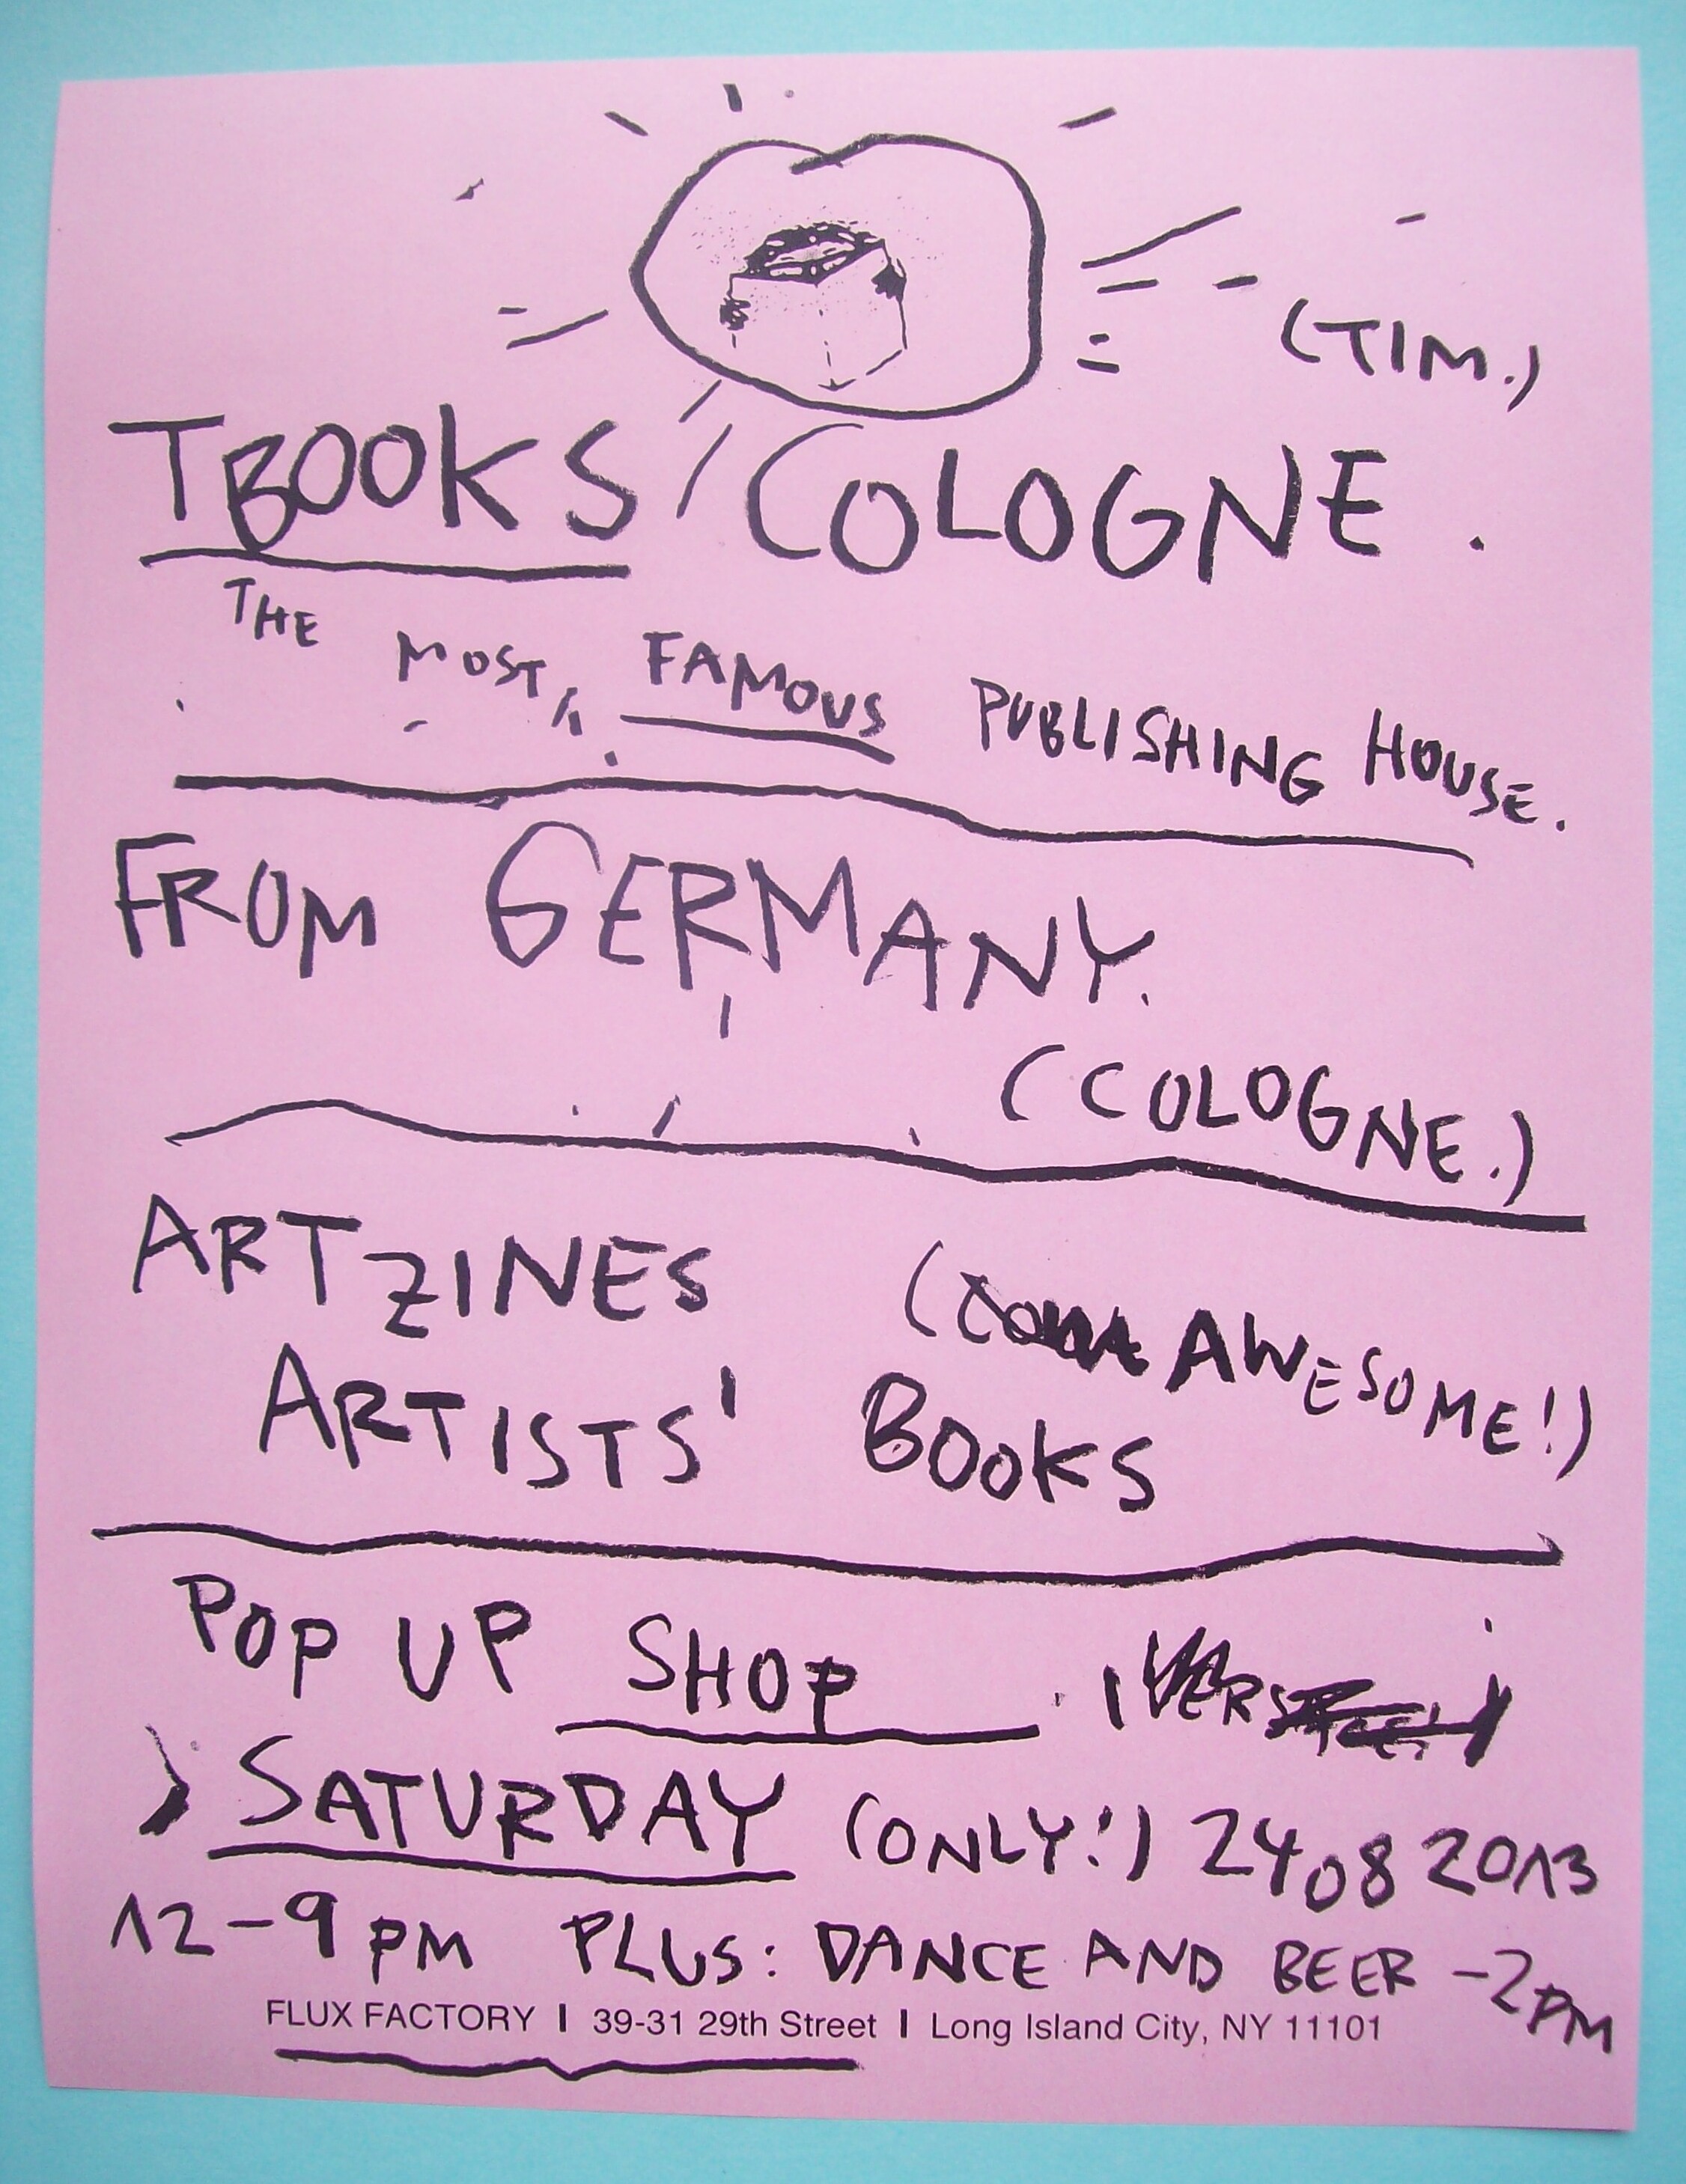 (TIM.)
TBOOKS COLOGNE.
THE MOST FAMOUS PUBLISHING HOUSE.
FROM GERMANY.
(COLOGNE.)
ART ZINES
(AWESOME!)
ARTISTS' BOOKS
POP UP SHOP
SATURDAY (ONLY!) 24 08 2013
12-9 PM PLUS: DANCE AND BEER -2PM
FLUX FACTORY | 39-31 29th Street | Long Island City, NY 11101